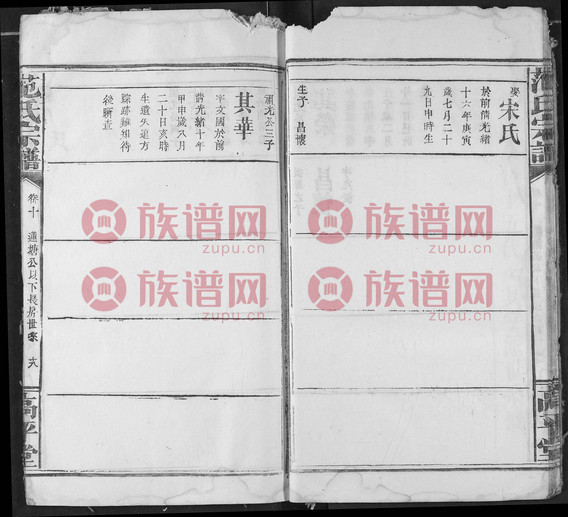 娶
宋氏
於前清光緒
十六年庚寅
歲七月二十
九日申時生
生子 昌懷
禎光公三子
其華
字文國於前
清光緒十年
甲申歲八月
二十日亥時
生遺失遠方
踪跡難細待
後續查
范氏宗譜
卷十
通塘公以下長房世系
高平堂
族谱网
zupu.cn
族谱网
zupu.cn
族谱网
zupu.cn
族谱网
zupu.cn